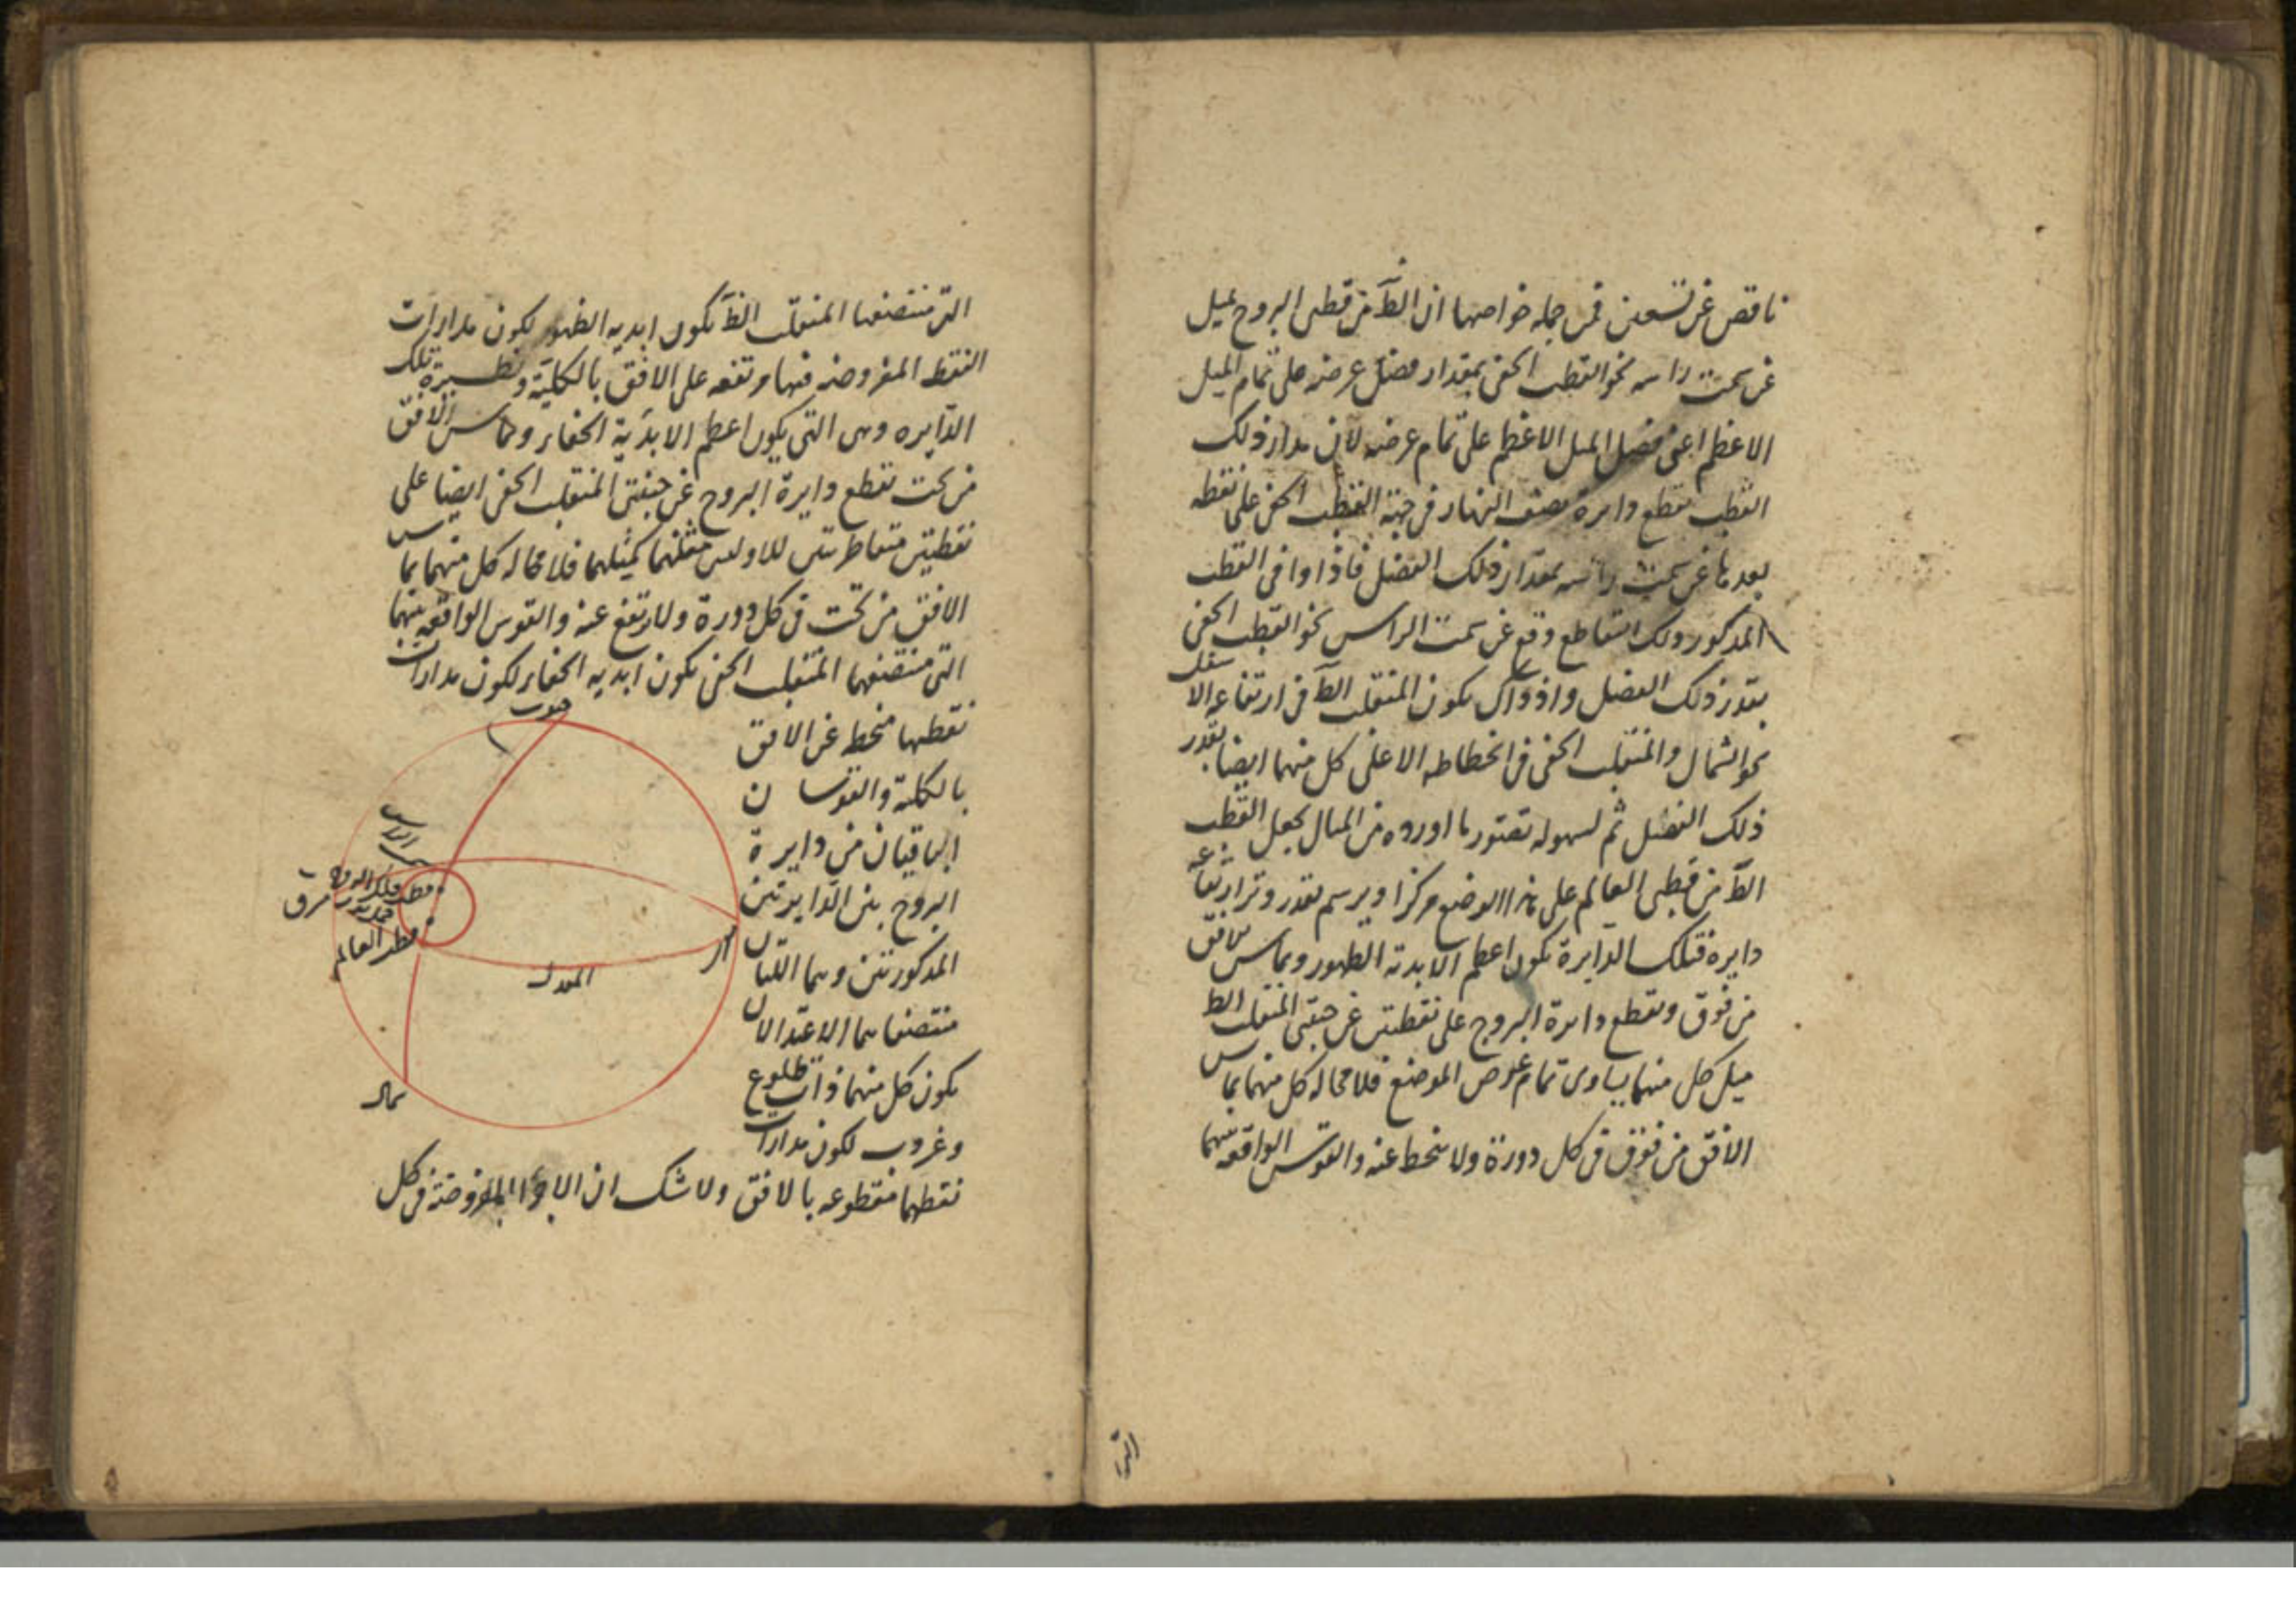 ناقص عن تسعين فمن جمله خواصها ان الظ من قطبى البروج يميل
عن سمت راسه نحو القطب الخفى بمقدار فضل عرضه على تمام الميل
الاعظم اعنى فضل الميل الاعظم على تمام عرضه لان مدار ذلك
القطب يقطع دايرة نصف النهار فى جهة القطب الخفى على نقطه
بعدها عن سمت راسه بمقدار ذلك الفضل فاذا وافى القطب
المذكور ذلك التقاطع وقع عن سمت الراس نحو القطب الخفى
بقدر ذلك الفضل واذ ذاك يكون المنقلب الظ فى ارتفاعه الاسفل
نحو الشمال والمنقلب الخفى فى انحطاطه الاعلى كل منهما ايضا بقدر
ذلك الفضل ثم لسهوله تصور ما اورده من المثال يجعل القطب
الظ من قطبى العالم على هذا الوضع مركزا ويرسم بقدر وتر ارتفاعه
دايره فتلك الدايرة يكون اعظم الابدية الظهور ويماس الافق
من فوق ويقطع دايرة البروج على نقطتين عن جنبتى المنقلب الظ
ميل كل منهما يساوى تمام عرض الموضع فلا محاله كل منهما يماس
الافق من فوق فى كل دورة ولا ينحط عنه والقوس الواقعه بينهما
التى
التى منتصفها المنقلب الظ يكون ابديه الظهور لكون مدارات
النقط المفروضه فيها مرتفعه على الافق بالكلية ونظيرة تلك
الدايره وهى التى يكون اعظم الابدية الخفاء ويماس الافق
من تحت يقطع دايرة البروج عن جنبتى المنقلب الخفى ايضا على
نقطتين متقاطرتين للاوليين مثلهما كميلهما فلا محاله كل منهما يماس
الافق من تحت فى كل دورة ولا يرتفع عنه والقوس الواقعه بينهما
التى منتصفها المنقلب الخفى يكون ابديه الخفاء لكون مدارات
نقطها منحط عن الافق
بالكلية والقوسان
الباقيان من دايرة
البروج بين الدايرتين
المذكورتين وهما اللتان
منتصفاهما الاعتدالان
يكون كل منهما ذات طلوع
وغروب لكون مدارات
نقطهما مقطوعه بالافق ولا شك ان المفروضة فى كل
جنوب
الراس
قطب فلك البروج
شرق
قطب العالم
المعدل
شمال